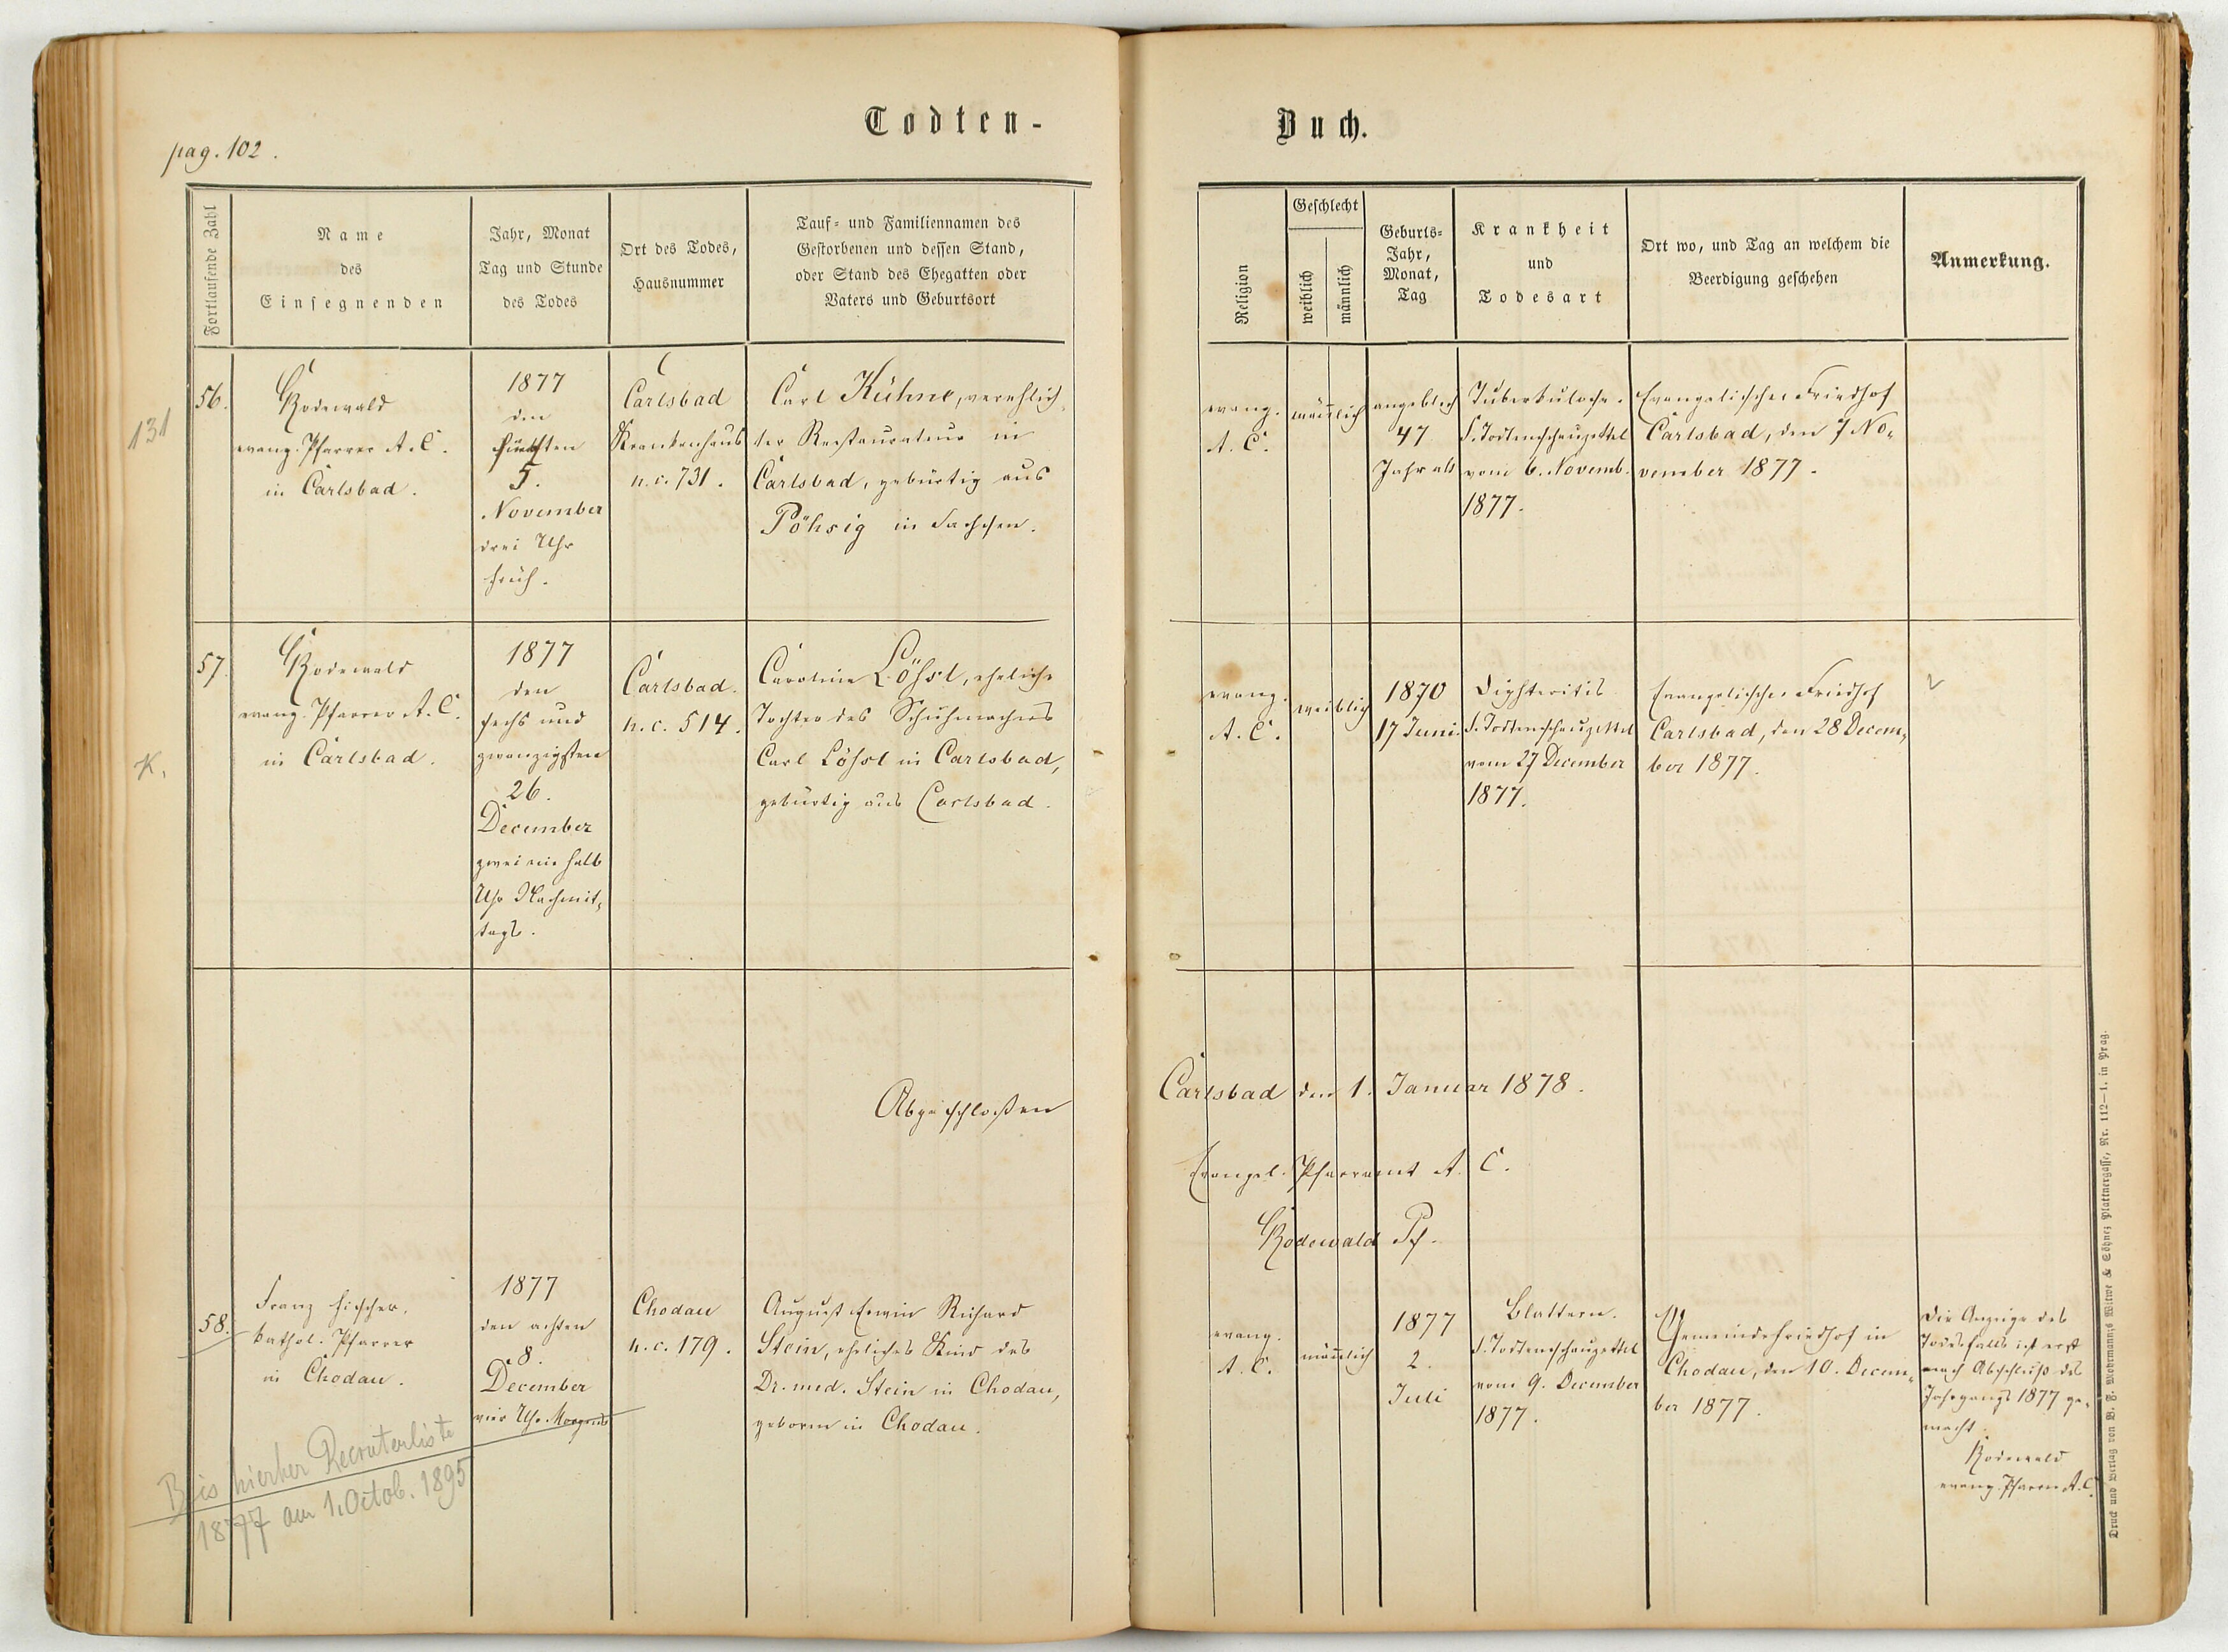 Todten-
Buch.
pag. 102.
Fortlaufende Zahl
Name
des
Einsegnenden
Jahr, Monat
Tag und Stunde
des Todes
Ort des Todes,
Hausnummer
Tauf- und Familiennamen des
Gestorbenen und dessen Stand,
oder Stand des Ehegatten oder
Vaters und Geburtsort
Religion
Geschlecht
weiblich
männlich
Geburts-
Jahr,
Monat,
Tag
Krankheit
und
Todesart
Ort wo, und Tag an welchem die
Beerdigung geschehen
Anmerkung.
131
56.
Rodewald
evang. Pfarrer A. C.
in Carlsbad.
1877
den
fünften
5.
November
drei Uhr
früh.
Carlsbad
Krankenhaus
n. c. 731.
Carl Kühne, verehlich-
ter Restaurateur in
Carlsbad, gebürtig aus
Pöhsig in Sachsen.
evang.
A. C.
männlich
angeblich
47
Jahr alt
Tuberkulose.
S. Todtenschauzettel
vom 6. Novemb.
1877.
Evangelischer Friedhof
Carlsbad, den 7 No-
vember 1877.
K.
57.
Rodewald
evang. Pfarrer A. C.
in Carlsbad.
1877
den
sechs und
zwanzigsten
26.
December
zwei ein halb
Uhr Nachmit-
tags.
Carlsbad.
n. c. 514.
Caroline Löhsl, eheliche
Tochter des Schuhmachers
Carl Löhsl in Carlsbad,
gebürtig aus Carlsbad.
evang.
A. C.
weiblich
1870
17 Juni.
Diphteritis
S. Todtenschauzettel
vom 27 December
1877.
Evangelischer Friedhof
Carlsbad, den 28 Decem-
ber 1877.
Abgeschloßen
Carlsbad den 1. Januar 1878.
Evangel. Pfarramt A. C.
Rodewald Pf.
58.
Franz Fischer,
kathol. Pfarrer
in Chodau.
1877
den achten
8.
December
vier Uhr Morgens
Chodau
n. c. 179.
August Erwin Richard
Stein, eheliches Kind des
Dr. med. Stein in Chodau,
geboren in Chodau.
evang.
A. C.
männlich
1877
2.
Juli
Blattern.
S. Todtenschauzettel
vom 9. December
1877.
Gemeindefriedhof in
Chodau, den 10. Decem-
ber 1877.
Die Anzeige des
Todesfalls ist erst
nach Abschluß des
Jahrgangs 1877 ge-
macht.
Rodewald
evang. Pfarrer A. C.
Bis hierher Recrutenliste
1877 am 1. Octob. 1895
Druck und Verlag von B. F. Mohrmann's Witwe & Söhne; Plattnergasse, Nr. 112—1. in Prag.